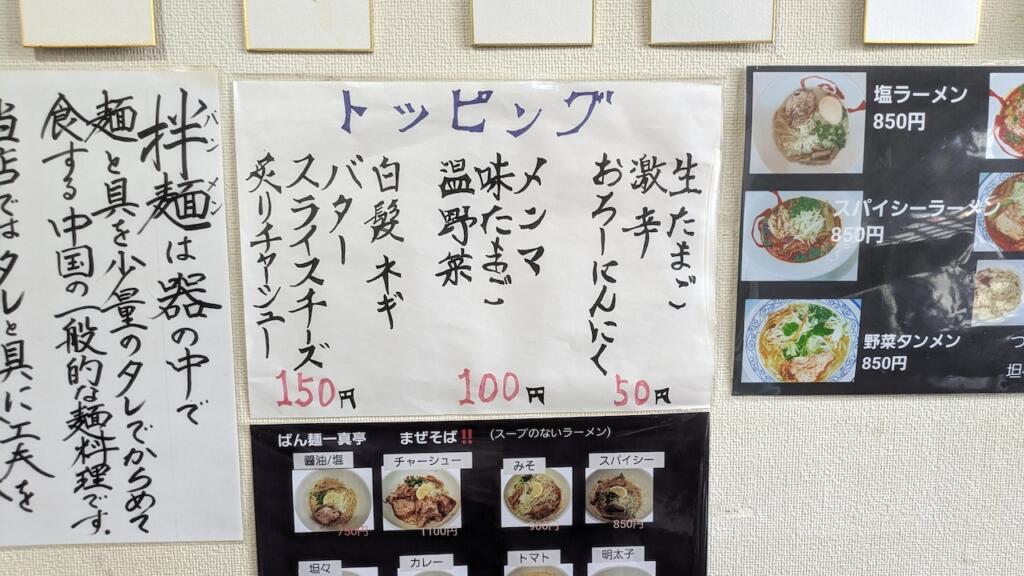 拌麺は器の中で
バンメン
麺と具を少量のタレでからめて
食する中国の一般的な麺料理です。
当店ではタレと具に工夫を
トッピング
生たまご
激辛
おろしにんにく
50円
メンマ
味たまご
温野菜
100円
白髪ネギ
バター
スライスチーズ
炙りチャーシュー
150円
塩ラーメン
850円
スパイシーラーメン
850円
野菜タンメン
850円
ばん麺一真亭 まぜそば‼ (スープのないラーメン)
醤油/塩
750円
チャーシュー
1100円
みそ
900円
スパイシー
850円
坦々
カレー
トマト
明太子
つ
坦